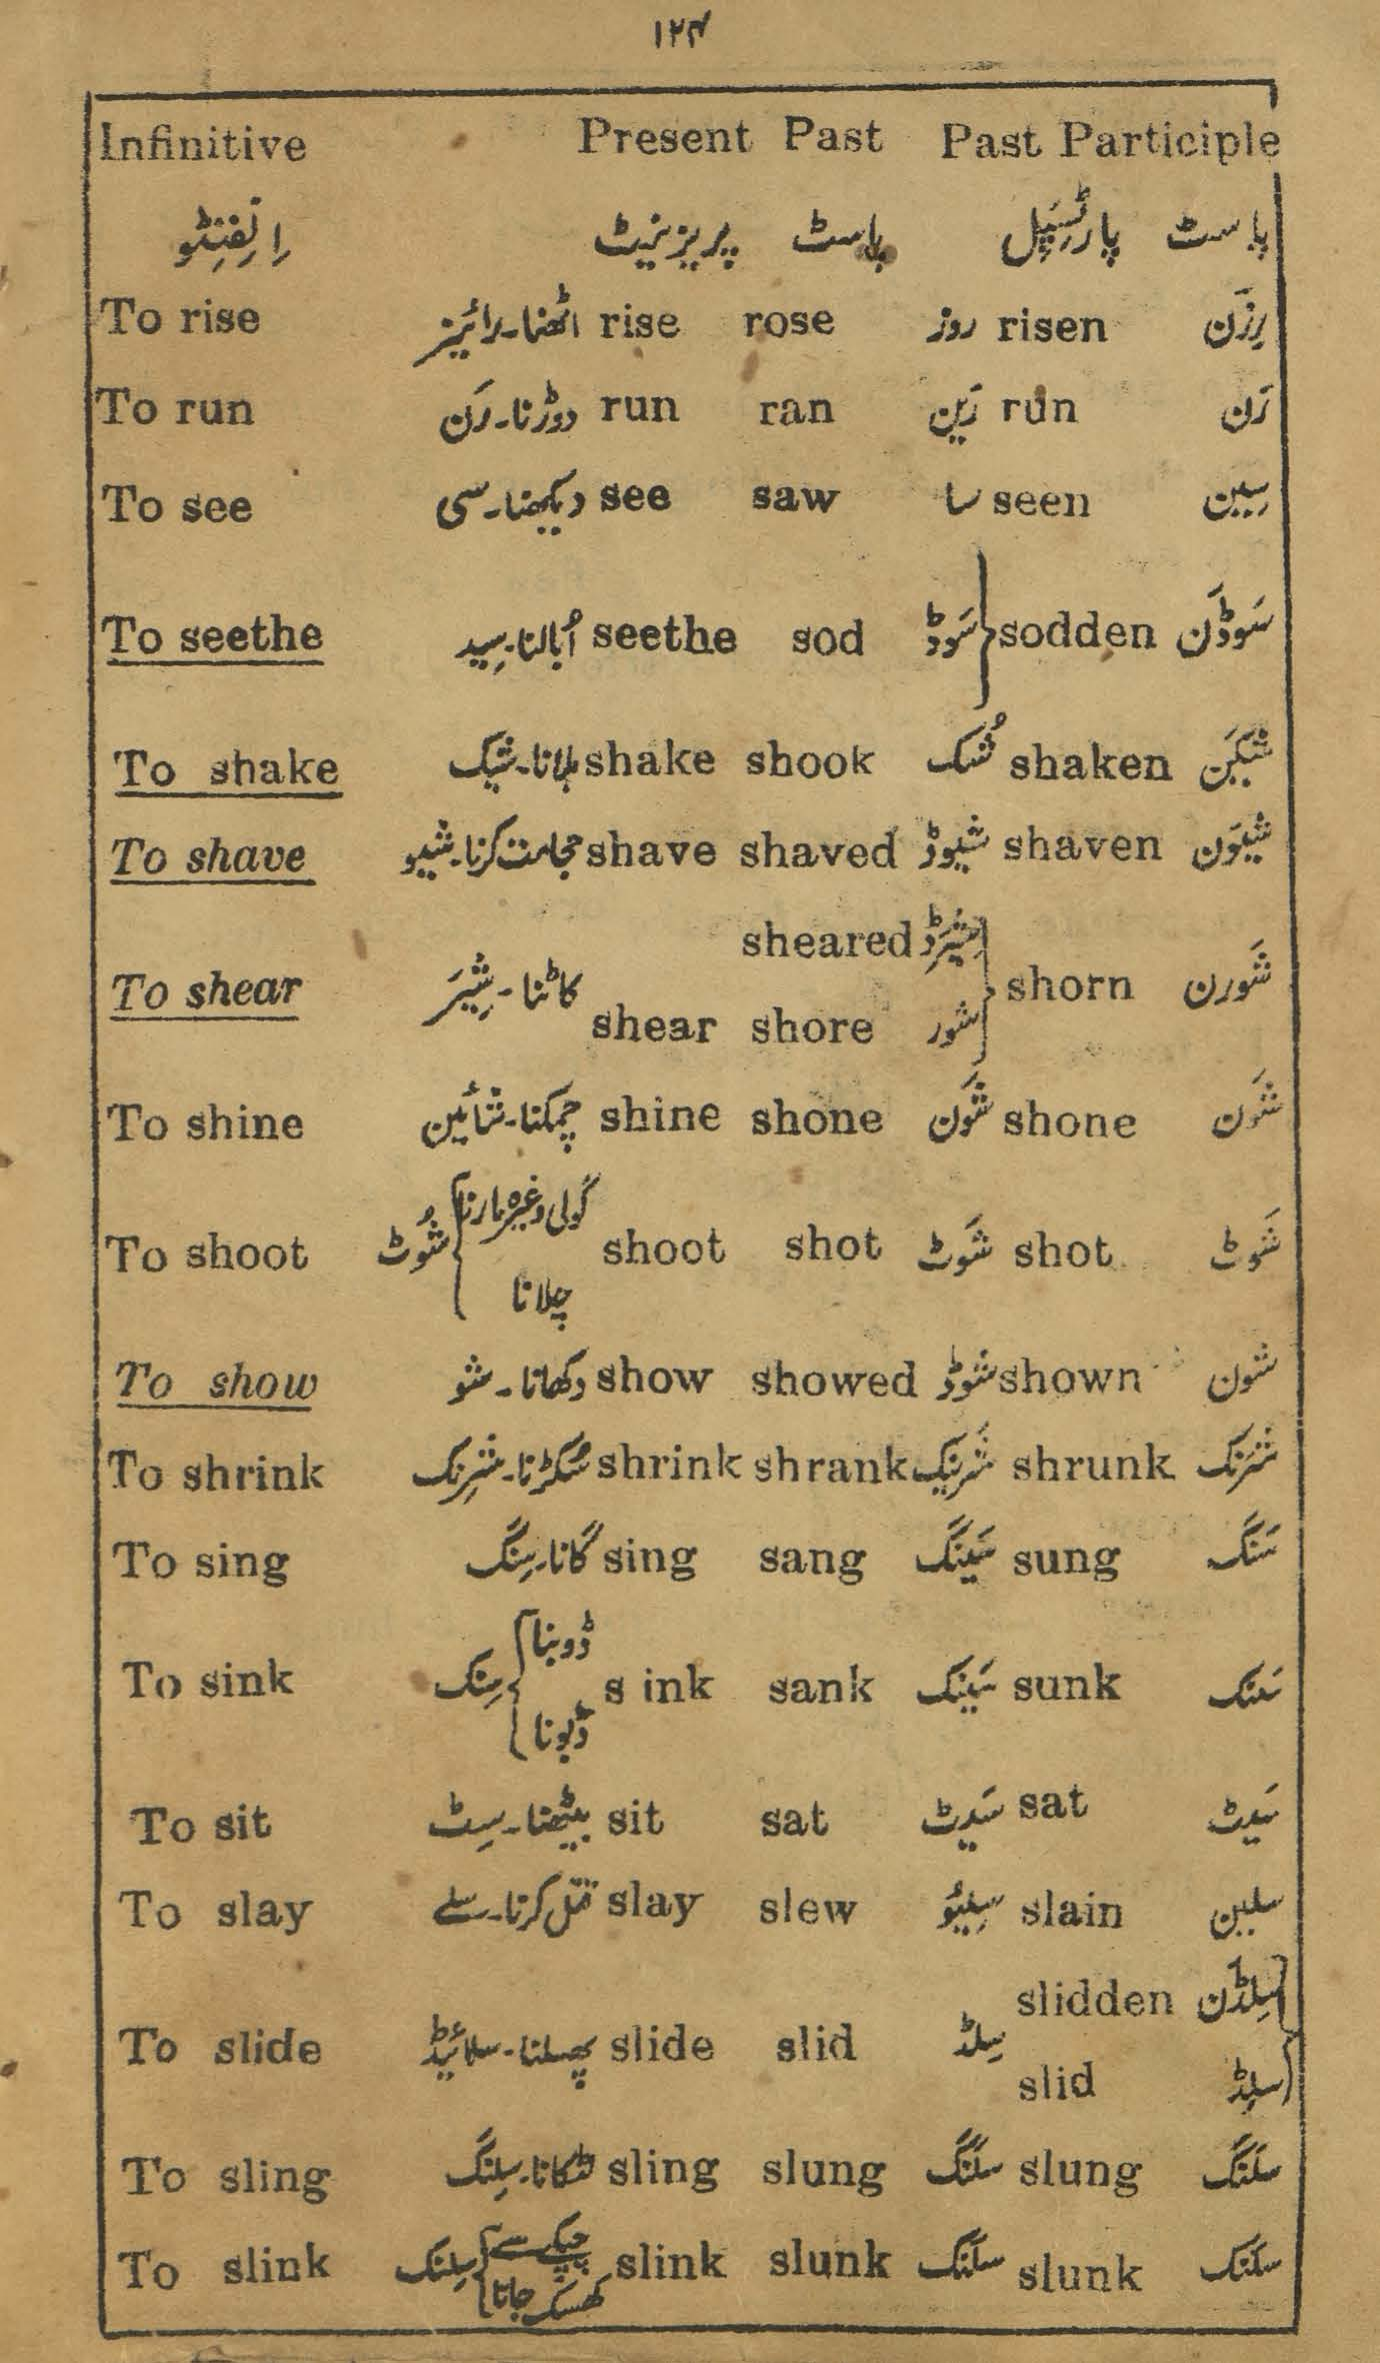 ۱۲۴
Infinitive Present Past Past Participle
اِنفِنِٹو پریزینٹ پاسٹ پاسٹ پارٹِسِپَل
To rise اٹھنا۔رائیز rise rose روز risen رِزَن
To run دوڑنا۔رَن run ran رَین run رَن
To see دیکھنا۔سی see saw سا seen سِیین
To seethe اُبالنا۔سِید seethe sod سَوڈ sodden سَوڈَن
To shake ہلانا۔شیک shake shook شُک shaken شیکَن
To shave حجامت کرنا۔شیو shave shaved شیوڈ shaven شیوَن
sheared شِیَرڈ
To shear کاٹنا۔شِیَر shear shore شور shorn شَورن
To shine چمکنا۔شائین shine shone شَون shone شَون
To shoot شُوٹ گولی وغیرہ مارنا چلانا shoot shot شَوٹ shot شَوٹ
To show دکھانا۔شو show showed شوڈ shown شون
To shrink سُکڑنا۔شرِنک shrink shrank شرَینک shrunk شرَنک
To sing گانا۔سِنگ sing sang سَینگ sung سَنگ
To sink سِنک ڈوبنا ڈبونا s ink sank سَینک sunk سَنک
To sit بیٹھنا۔سِٹ sit sat سَیٹ sat سَیٹ
To slay قتل کرنا۔سلے slay slew سِلیُو slain سلین
slidden سِلڈَن
To slide پھسلنا۔سلائیڈ slide slid سِلڈ slid سلِڈ
To sling لٹکانا۔سِلنگ sling slung سلَنگ slung سلَنگ
To slink سِلنک چپکے سے کھسک جانا slink slunk سلَنک slunk سلَنک